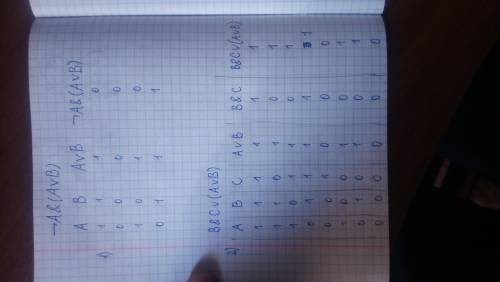 ¬A&(A∨B)
A B A∨B ¬A&(A∨B)
1) 1 1 1 0
0 0 0 0
1 0 1 0
0 1 1 1
B&C∨(A∨B)
2) A B C A∨B B&C B&C∨(A∨B)
1 1 1 1 1 1
1 1 0 1 0 1
1 0 1 1 0 1
0 1 1 1 1 1
0 0 1 0 0 0
1 0 0 1 0 1
0 1 0 1 0 1
0 0 0 0 0 0